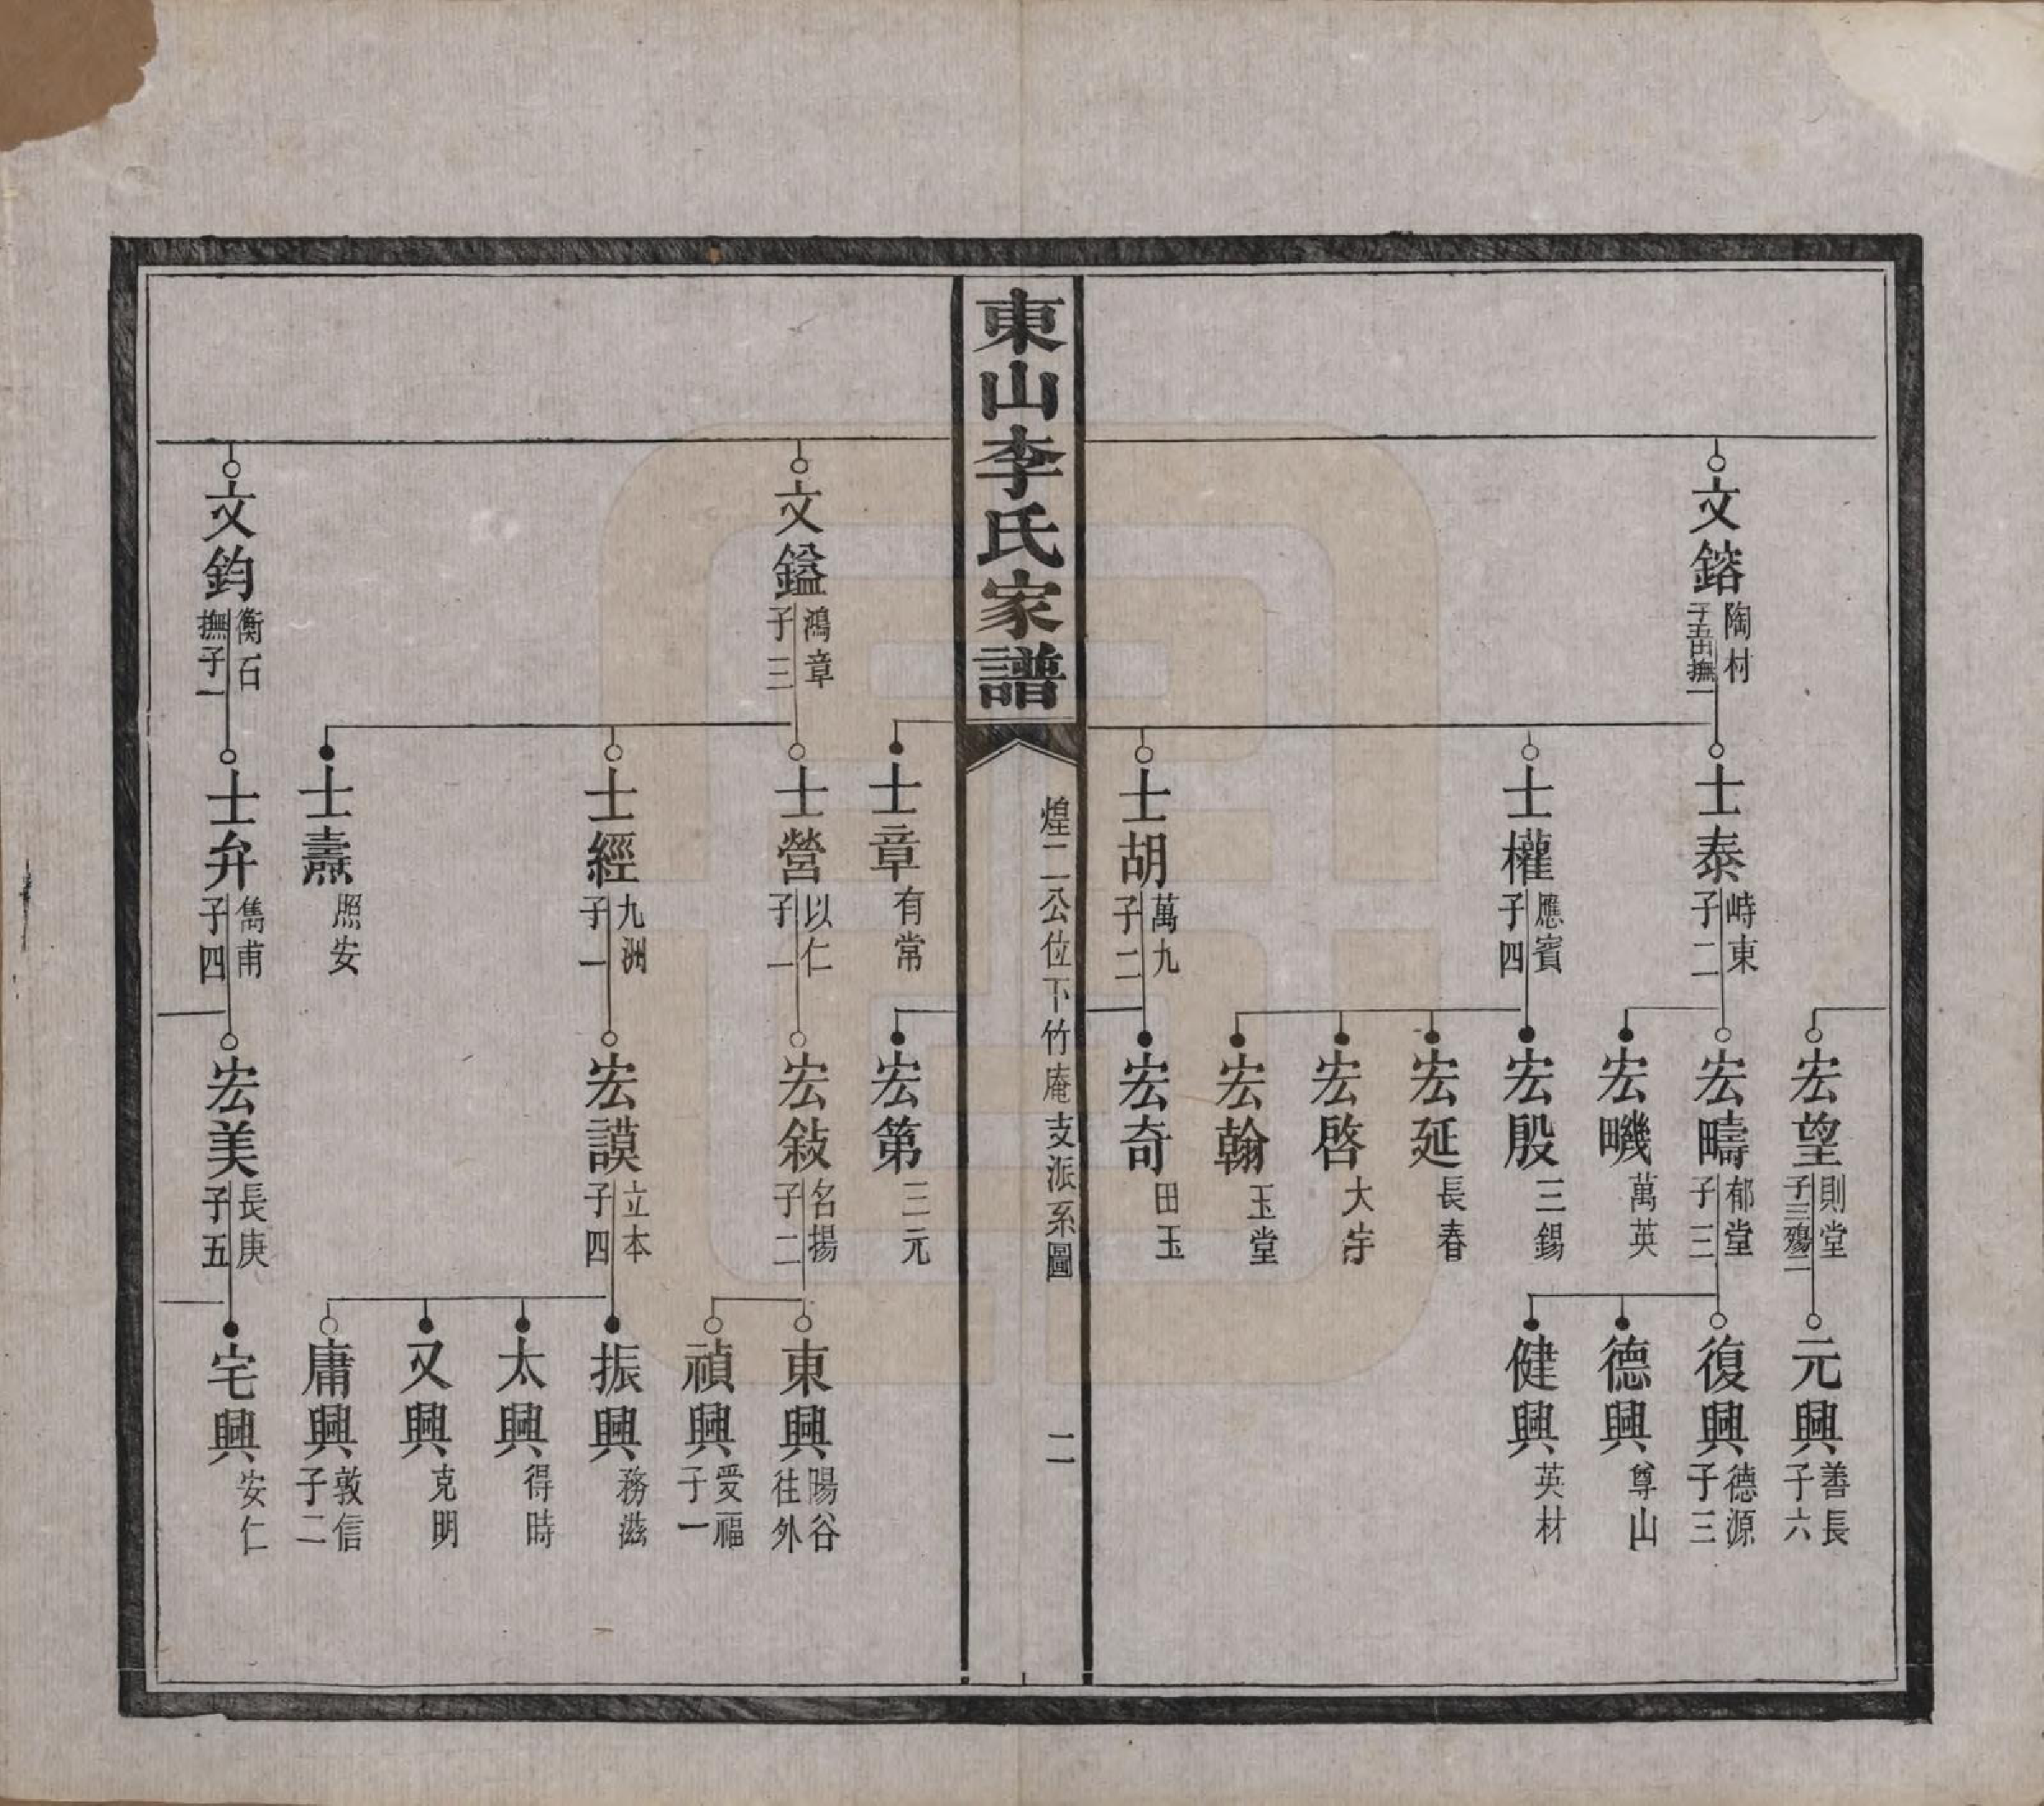 文鎔 陶村 子五出撫一
士泰 峙東 子二
士權 應賓 子四
士胡 萬九 子二
宏望 則堂 子三殤二
宏疇 郁堂 子三
宏畿 萬英
宏殷 三錫
宏延 長春
宏啓 大宇
宏翰 玉堂
宏奇 田玉
元興 善長 子六
復興 德源 子三
德興 尊山
健興 英材
東山李氏家譜
煌二公位下竹庵支派系圖
二
文鎰 鴻章 子三
文鈞 衡石 撫子一
士章 有常
士營 以仁 子一
士經 九洲 子一
士燾 照安
士弁 雋甫 子四
宏第 三元
宏敍 名揚 子二
宏謨 立本 子四
宏美 長庚 子五
東興 陽谷 往外
禎興 受福 子一
振興 務滋
太興 得時
又興 克明
庸興 敦信 子二
宅興 安仁